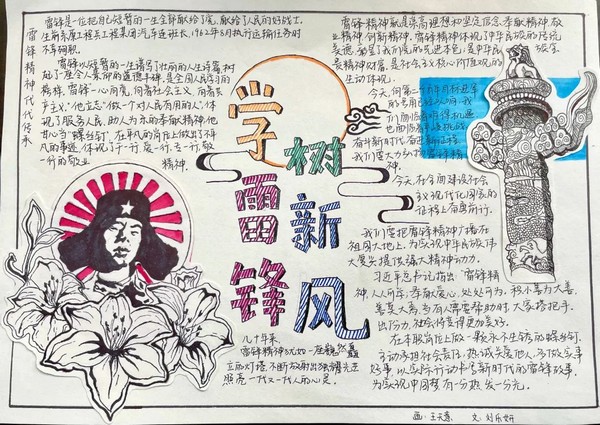 学雷锋
树新风
雷锋精神代代传承
雷锋是位把自己短暂的一生全部献给了党,献给了人民的好战士。
生前系原工程兵工程某团汽车连班长,1962年8月执行运输任务时
不幸殉职。
雷锋以短暂的一生谱写了壮丽的人生诗篇,树
起了一座令人景仰的道德丰碑,是全国人民学习的
榜样。雷锋一心向党,向着社会主义,向着共
产主义,"他立志"做一个对人民有用的人",体
现了服务人民、助人为乐的奉献精神,他
甘心当"螺丝钉",在平凡的岗位上做出了不平
凡的事迹,体现了干一行、爱一行、专一行、敬
一行的敬业精神。
几十年来
雷锋精神犹如一座巍然矗
立的灯塔,不断放射出璀璨光芒
照亮一代又一代人的心灵。
雷锋精神就是崇高理想和坚定信念,奉献精神,敬
业精神,创新精神。雷锋精神体现了中华民族的传统
生动体现。
今天,在全面建设社会
主义现代化国家的
征程上奋勇前行,
我们要把雷锋精神广播在
祖国大地上,为实现中华民族伟
大复兴提供强大精神动力。
习近平总书记指出:雷锋精
神,人人可学;奉献爱心,处处可为。积小善为大善,
善莫大焉。当有人需要帮助时,大家搭把手、
出份力,社会将变得更加美好。
在本职岗位上做一颗永不生锈的螺丝钉,
主动承担社会责任,热诚关爱他人,多做实事
好事,以实际行动书写新时代的雷锋故事,
为实现中国梦有一分热发一分光。
画:王天意 文:刘乐妍